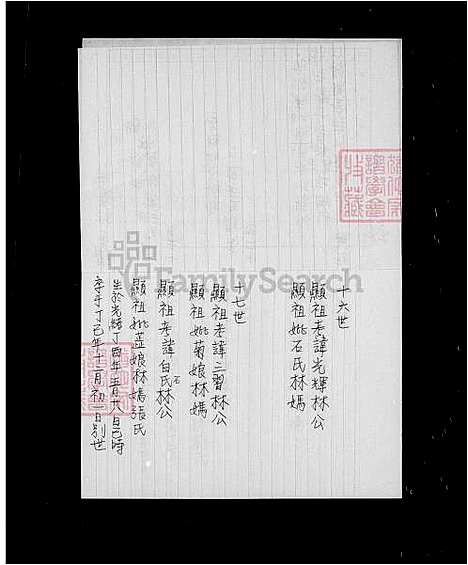 十六世
顯祖考諱光輝林公
顯祖妣石氏林媽
十七世
顯祖考諱三習林公
顯祖妣菊娘林媽
顯祖考諱白氏林公
石
顯祖妣蓝娘林媽張氏
生於光緒丁酉年 月 日巳時
卒于丁巳年十二月初一日別世
譜學會
收藏
FamilySearch